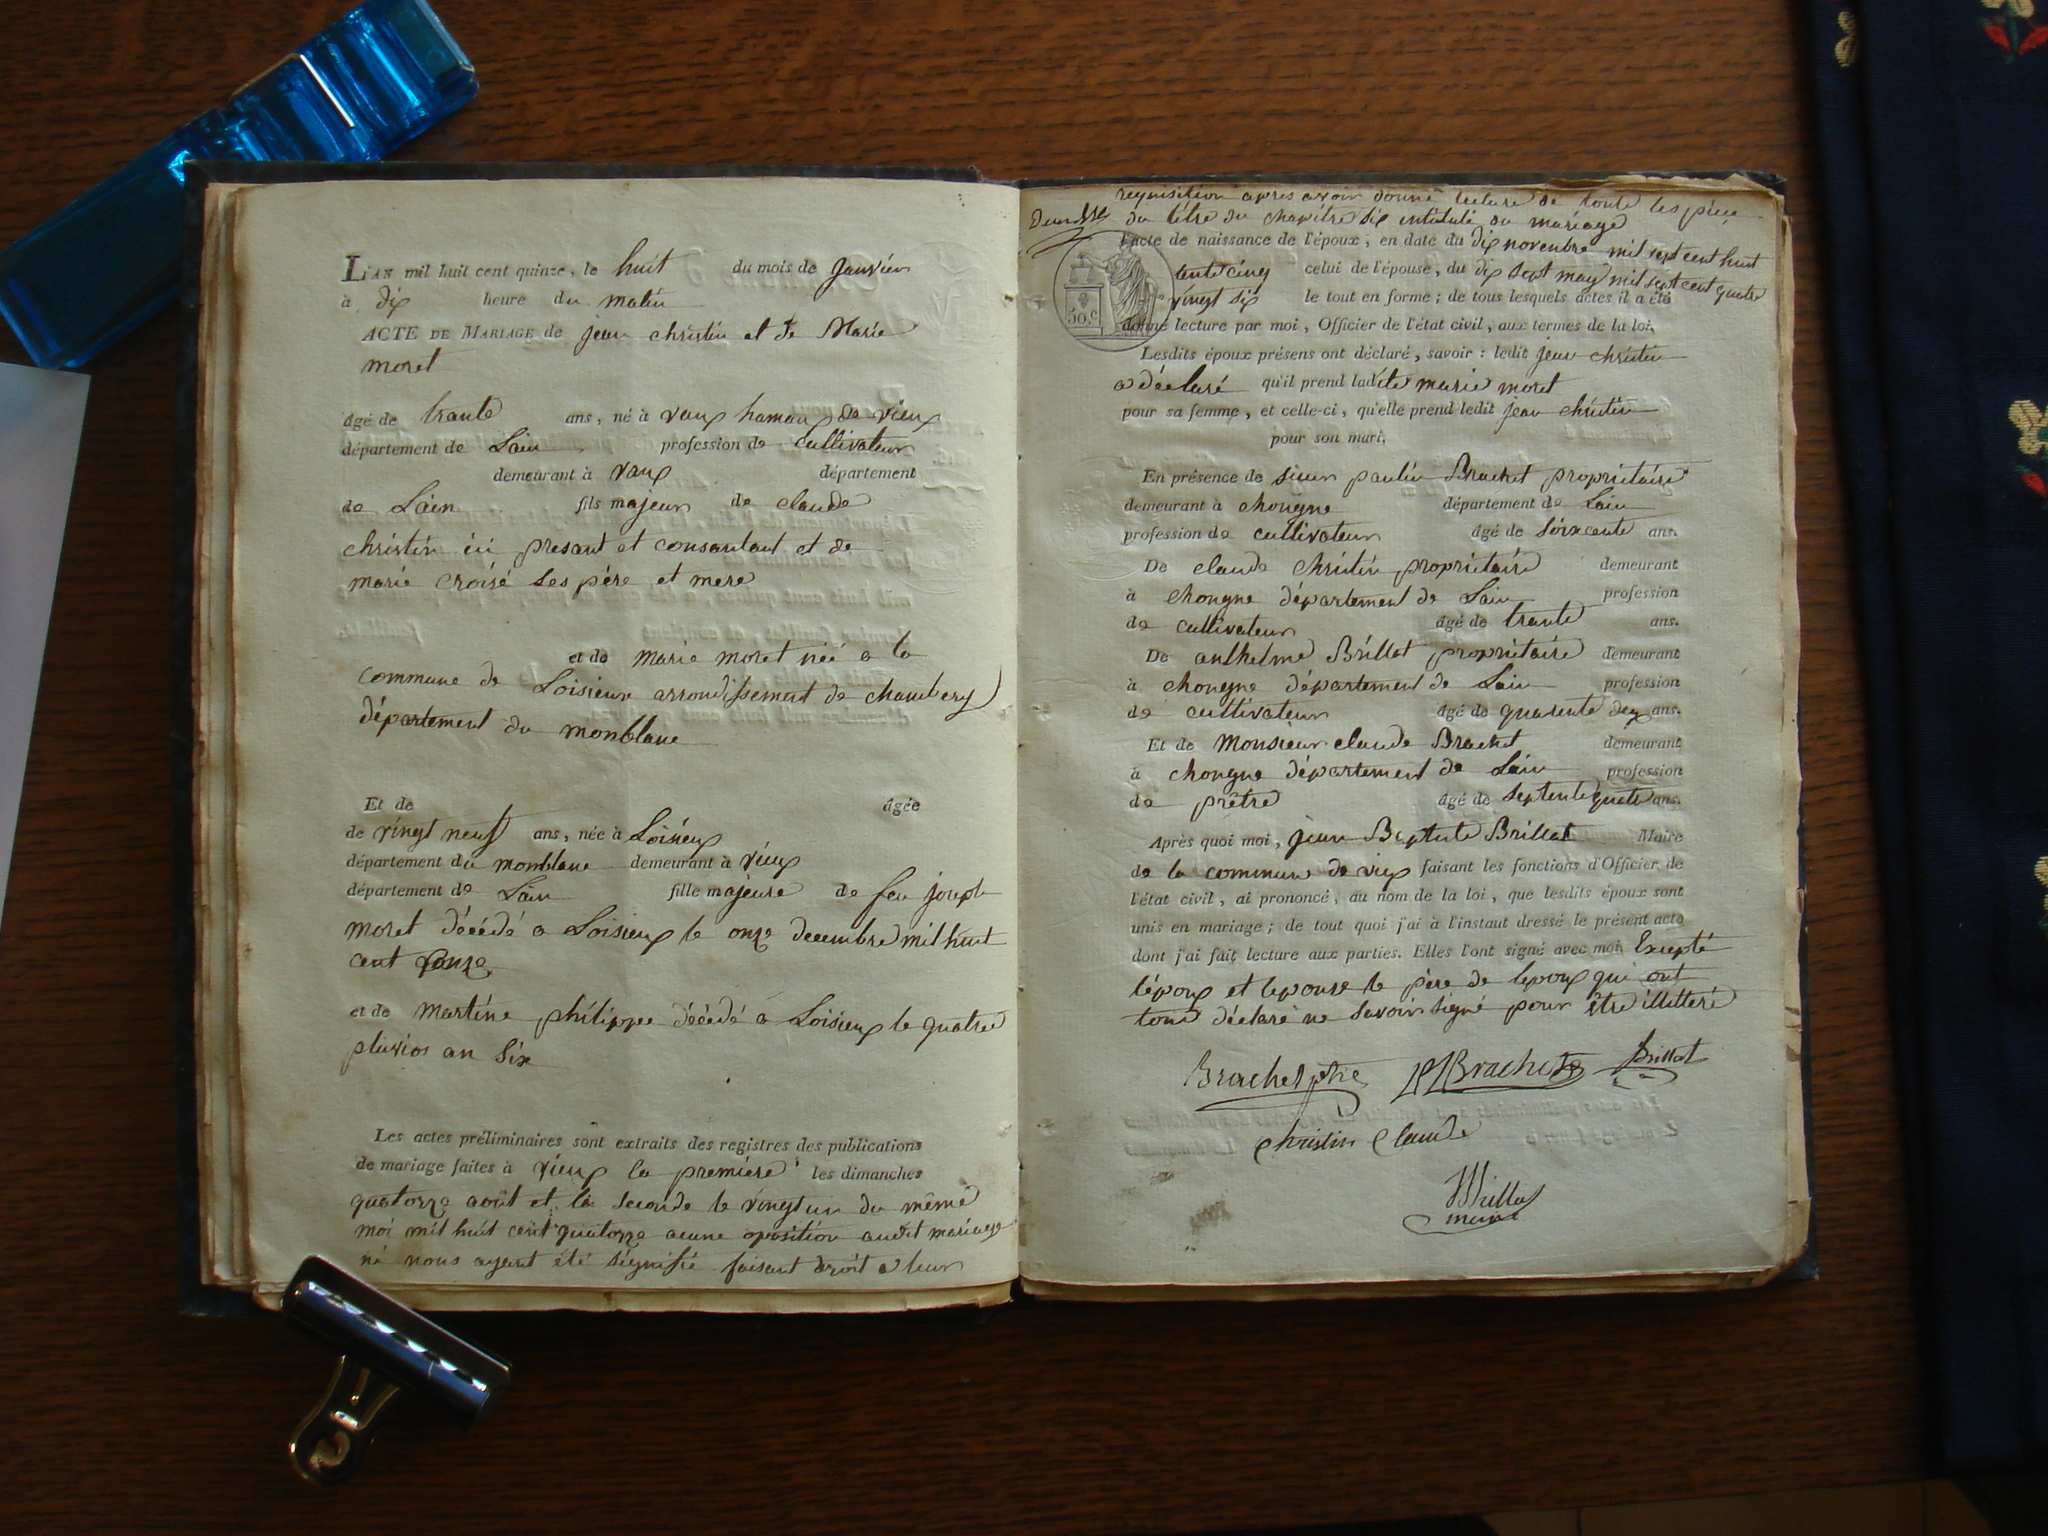 L'AN mil huit cent quinze, le huit du mois de janvier
à dix heure du matin
ACTE DE MARIAGE de jean christin et de Marie
moret
âgé de trante ans, né à vaux hamau de vieux
département de Lain profession de cultivateur
demeurant à vaux département
de Lain fils majeur de claude
christin ici presant et consantant et de
marie croisé ses père et mere
et de marie moret née a la
commune de Loisieux arrondissement de chambery
département du monblanc
Et de âgée
de vingt neuf ans, née à Loisieux
département du monblanc demeurant à vieux
département de Lain fille majeure de feu joseph
moret décédé a Loisieux le onze decembre mil huit
cent onze
et de martine philippe décédé a Loisieux le quatre
pluvios an six
Les actes préliminaires sont extraits des registres des publications
de mariage faites à vieux la première les dimanches
quatorze août et la seconde le vingt un du même
moi mil huit cent quatorze aucune oposition audit mariage
ne nous ayant été signifié faisant droit a leur
requisition apres avoir donné lecture de toute les pièce
du titre du chapitre six intitulé du mariage
l'acte de naissance de l'époux, en date du dix novembre mil sept cent huit
ante cinq celui de l'épouse, du dix sept may mil sept cent quatre
vingt six le tout en forme; de tous lesquels actes il a été
50.c
donné lecture par moi, Officier de l'état civil, aux termes de la loi.
Lesdits époux présens ont déclaré, savoir: ledit jean christin
a déclaré qu'il prend ladite marie moret
pour sa femme, et celle-ci, qu'elle prend ledit jean christin
pour son mari.
En présence de sieur paulin Brachet propriétaire
demeurant à chongne département de Lain
profession de cultivateur âgé de soixcente ans.
De claude christin propriétaire demeurant
à chongne département de Lain profession
de cultivateur âgé de trante ans.
De anthelme Brillat propriétaire demeurant
à chongne département de Lain profession
de cultivateur âgé de quarente deux ans.
Et de Monsieur claude Brachet demeurant
à chongne département de Lain profession
de prêtre âgé de septente quatre ans.
Après quoi moi, jean Baptiste Brillat Maire
de la commune de vieux faisant les fonctions d'Officier de
l'état civil, ai prononcé, au nom de la loi, que lesdits époux sont
unis en mariage; de tout quoi j'ai à l'instant dressé le présent acte
dont j'ai fait lecture aux parties. Elles l'ont signé avec moi Excepté
lépoux et lepouse le père de lepoux qui ont
tous déclaré ne savoir signé pour être illitteré
Brachet ptre Brachet Brillat
christin Claude
Brillat
maire